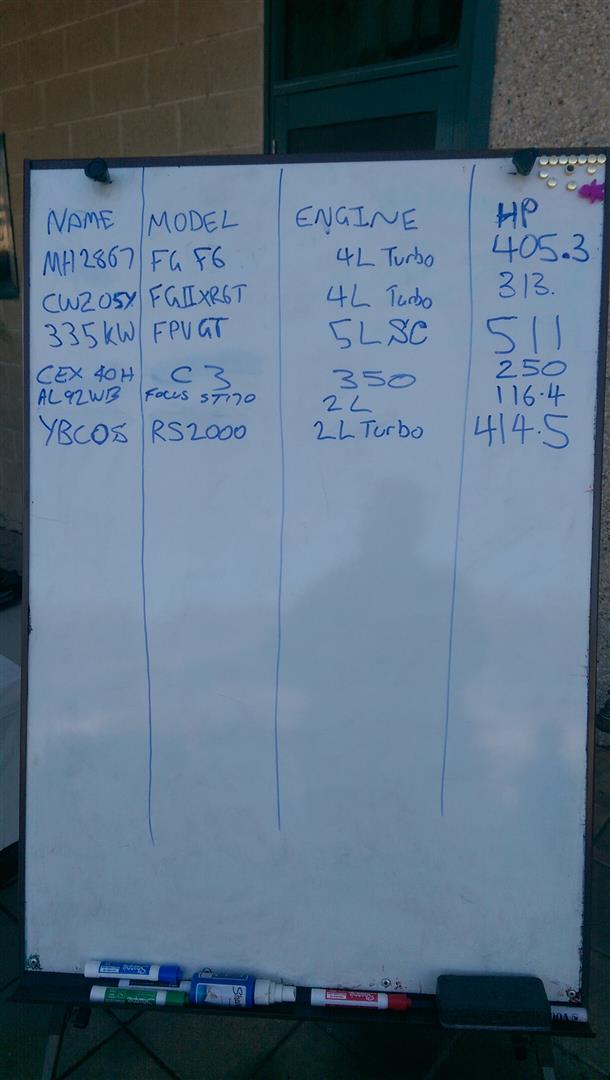 NAME MODEL ENGINE HP
MH2867 FG F6 4L Turbo 405.3
CW205Y FGIIXR6T 4L Turbo 313.
335KW FPV GT 5L SC 511
CEX 40H C3 350 250
AL92WB FOCUS ST170 2L 116.4
YBCOS RS2000 2L Turbo 414.5